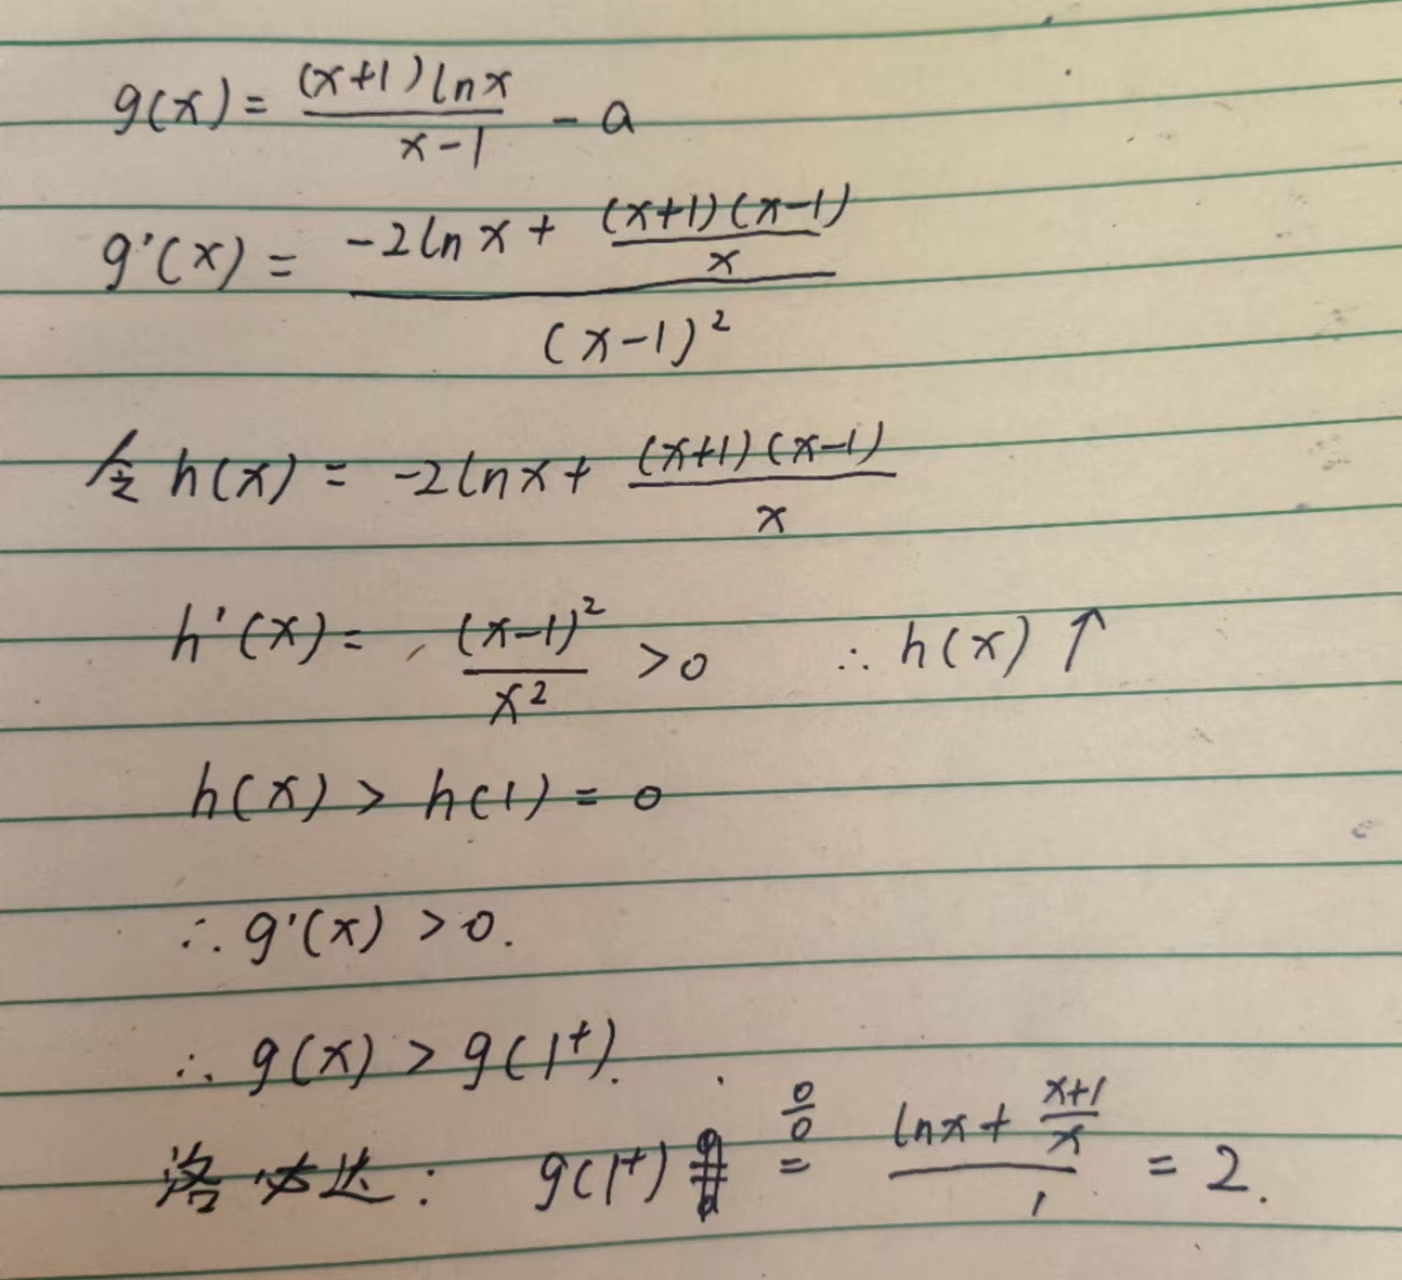 g(x) = \frac{(x+1)lnx}{x-1} - a
g'(x) = \frac{-2lnx + \frac{(x+1)(x-1)}{x}}{(x-1)^2}
令 h(x) = -2lnx + \frac{(x+1)(x-1)}{x}
h'(x) = \frac{(x-1)^2}{x^2} > 0 ∴ h(x) ↑
h(x) > h(1) = 0
∴ g'(x) > 0.
∴ g(x) > g(1^+).
洛必达: g(1^+) \overset{\frac{0}{0}}{=} \frac{lnx + \frac{x+1}{x}}{1} = 2.